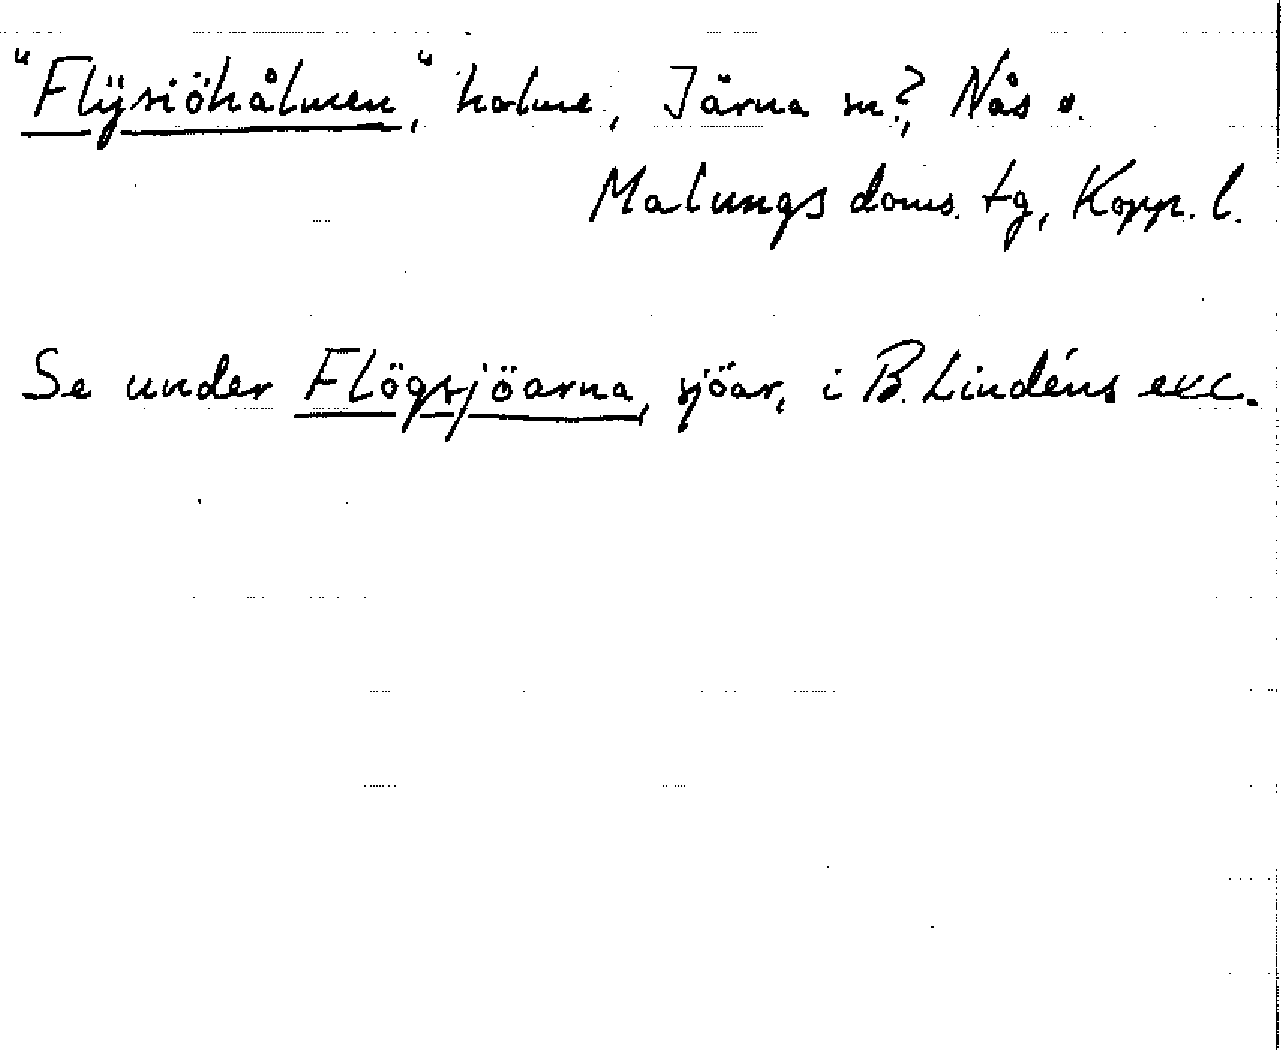 "Flÿsiöhålmen," holme, Järna sn?, Nås o.
Malungs doms. tg, Kopp. l.
Se under Flögsjöarna, sjöar, i B. Lindéns exc.